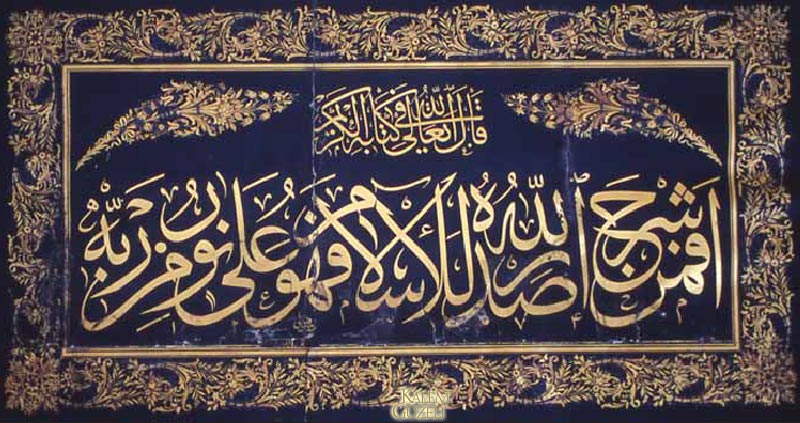 قال الله تعالى في كتابه الكريم
افمن شرح الله صدره للاسلام فهو على نور من ربه
KALEM
GÜZELİ